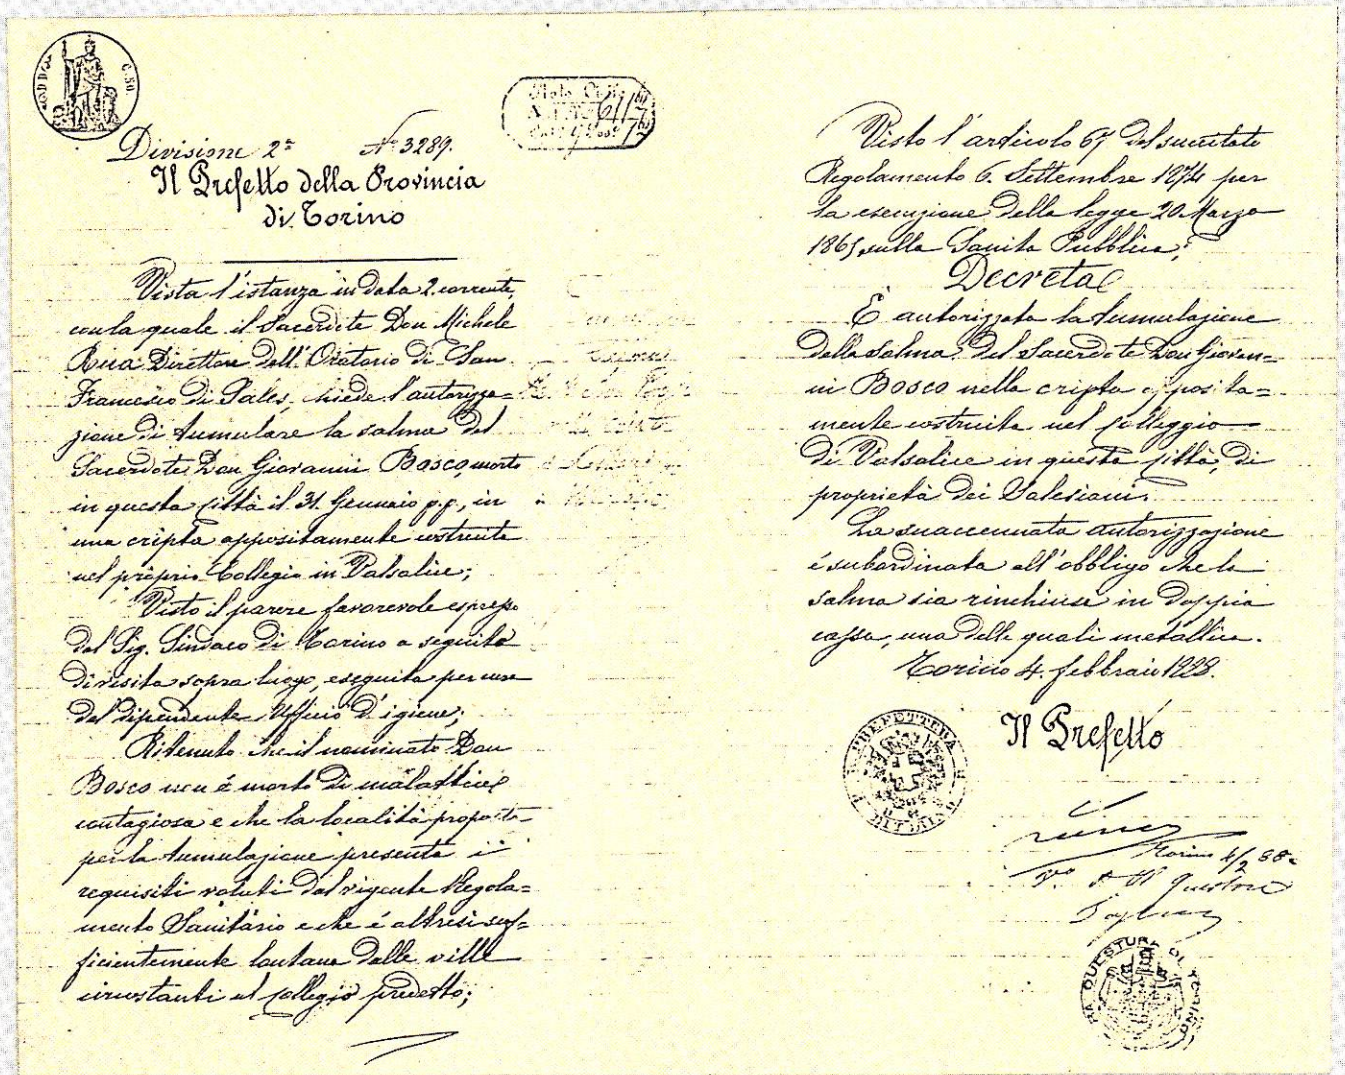 Divisione 2ª N° 3289.
Il Prefetto della Provincia
di Torino
Vista l'istanza in data 2 corrente,
con la quale il Sacerdote Don Michele
Rua Direttore dell'Oratorio di San
Francesco di Sales, chiede l'autorizza=
zione di tumulare la salma del
Sacerdote Don Giovanni Bosco, morto
in questa città il 31 Gennaio p.p., in
una cripta appositamente costruita
nel proprio Collegio in Valsalice;
Visto il parere favorevole espresso
dal Sig. Sindaco di Torino a seguito
di visita sopra luogo, eseguita per cura
del dipendente Ufficio d'igiene;
Ritenuto che il nominato Don
Bosco non è morto di malattia
contagiosa e che la località proposta
per la tumulazione presenta i
requisiti voluti dal vigente Regola=
mento Sanitario e che è altresì suf=
ficientemente lontana dalle ville
circostanti al Collegio predetto;
Visto l'articolo 67 del succitato
Regolamento 6. Settembre 1874 per
la esecuzione della legge 20 Marzo
1865 sulla Sanità Pubblica;
Decreta
È autorizzata la tumulazione
della salma del Sacerdote Don Giovan=
ni Bosco nella cripta apposita=
mente costruita nel Collegio
di Valsalice in questa città, di
proprietà dei Salesiani.
La suaccennata autorizzazione
è subordinata all'obbligo che la
salma sia rinchiusa in doppia
cassa, una delle quali metallica.
Torino 4. febbraio 1888.
Il Prefetto
PREFETTURA DI TORINO
Torino 4/2 88
V° Il Questore
QUESTURA DI TORINO